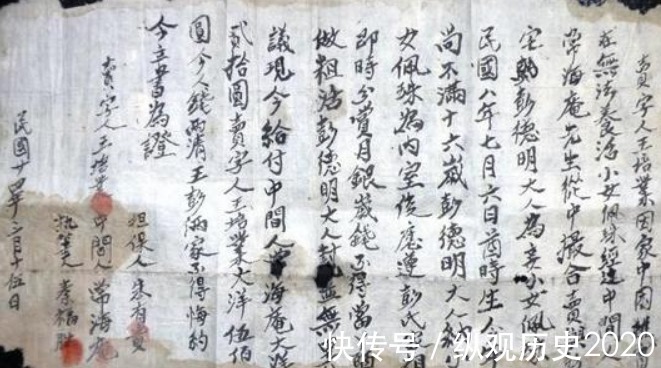 賣字人王培業因家中困難
在無法養活小女佩珠經過中間人
常海庵先生從中撮合賣與
宅與彭德明大人為妾小女佩珠
民國八年七月六日酉時生人
尚不滿十六歲彭德明大人須
女佩珠為內室後應遵彭氏
即時分賞月銀歲錢不得當
做粗活彭德明大人對並無
議現今給付中間人常海庵大洋
貳拾圓賣字人王培業大洋伍佰
圓今人錢兩清王彭兩家不得悔約
今立書為證
担保人
賣字人王培業中間人常海庵
執筆人李福勝
民國十四年三月十伍日
快传号/纵观历史2020